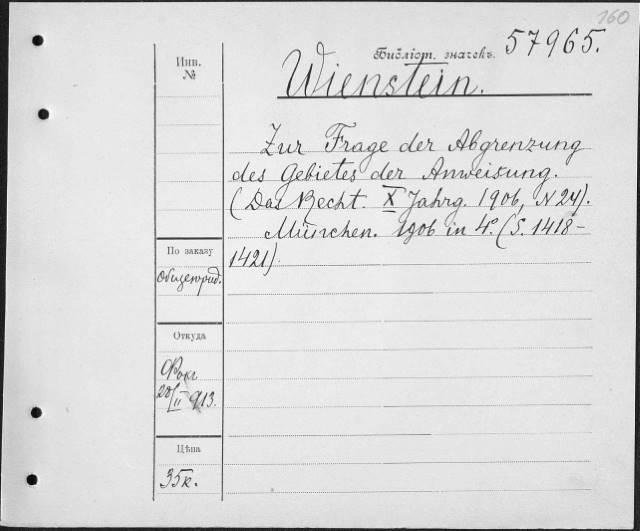 160
Библіот. значекъ. 57965.
Инв.
№
Wienstein.
Zur Frage der Abgrenzung
des Gebietes der Anweisung.
(Das Recht. X Jahrg. 1906, N 24).
München. 1906 in 4°. (S. 1418-
1421).
По заказу
Общеюрид.
Откуда
20/II 913.
Цѣна
35к.